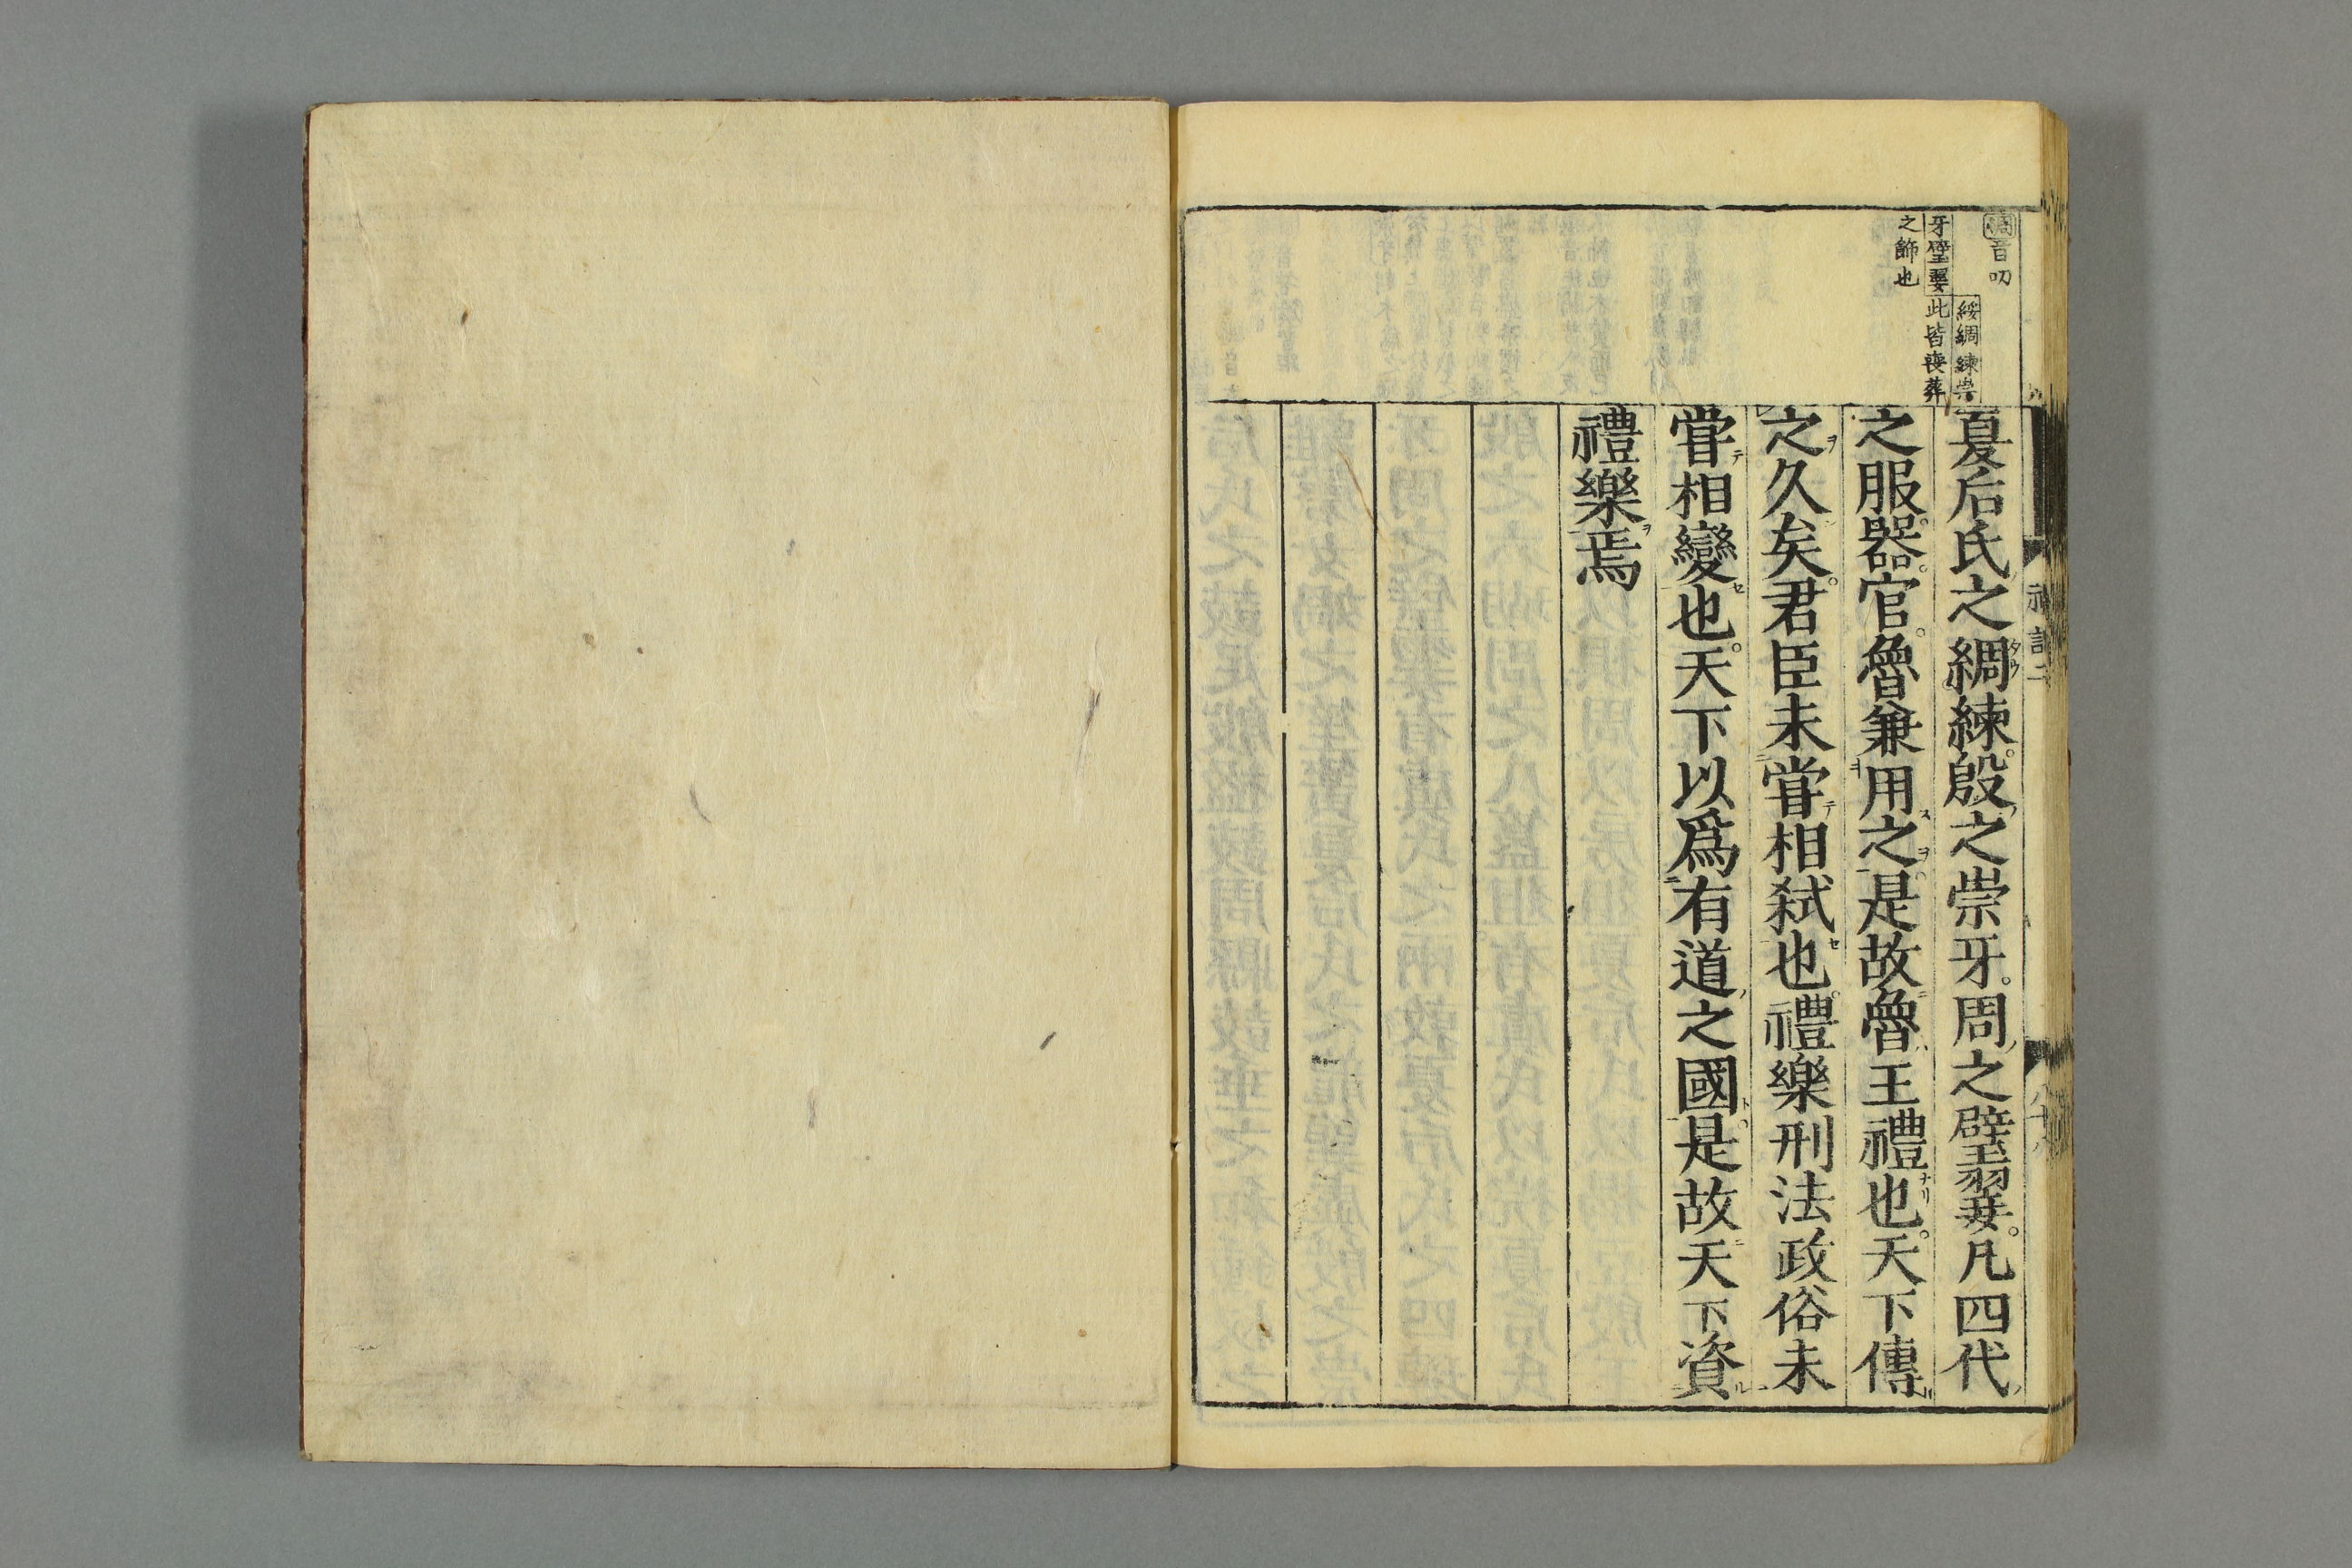 音叨
綏綢練崇
牙璧翣此皆喪葬
之飾也
夏后氏之綢練殷之崇牙周之璧翣凡四代
之服器官魯兼用之是故魯王禮也天下傳
之久矣君臣未甞相弑也禮樂刑法政俗未
甞相變也天下以爲有道之國是故天下資
禮樂焉